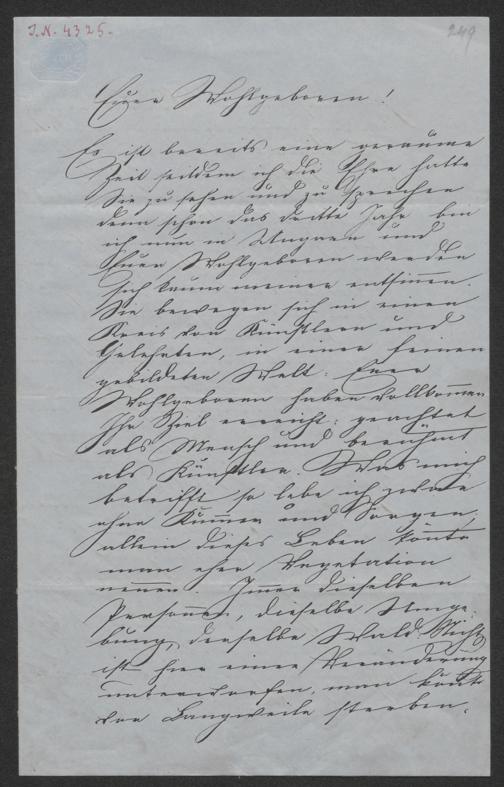 J.N. 4325.
249
Euer Wohlgeboren!
Es ist bereits eine geraume
Zeit seitdem ich die Ehre hatte
Sie zu sehen und zu sprechen
denn schon das dritte Jahr bin
ich nun in Ungarn und
Euer Wohlgeboren werden
sich kaum meiner entsinnen.
Sie bewegen sich in einen
Kreis von Künstlern und
Gelehrten, in einer feinen
gebildeten Welt: Euer
Wohlgeboren haben vollkommen
Ihr Ziel erreicht: geachtet
als Mensch und berühmt
als Künstler. Was mich
betrifft so lebe ich zwar
ohne Kummer und Sorgen,
allein dieses Leben könte
man eher Vegetation
nennen. Immer dieselben
Personen, dieselbe Umge-
bung, derselbe Wald. Nichts
ist hier einer Veränderung
unterworfen, man könte
vor Langweile sterben.